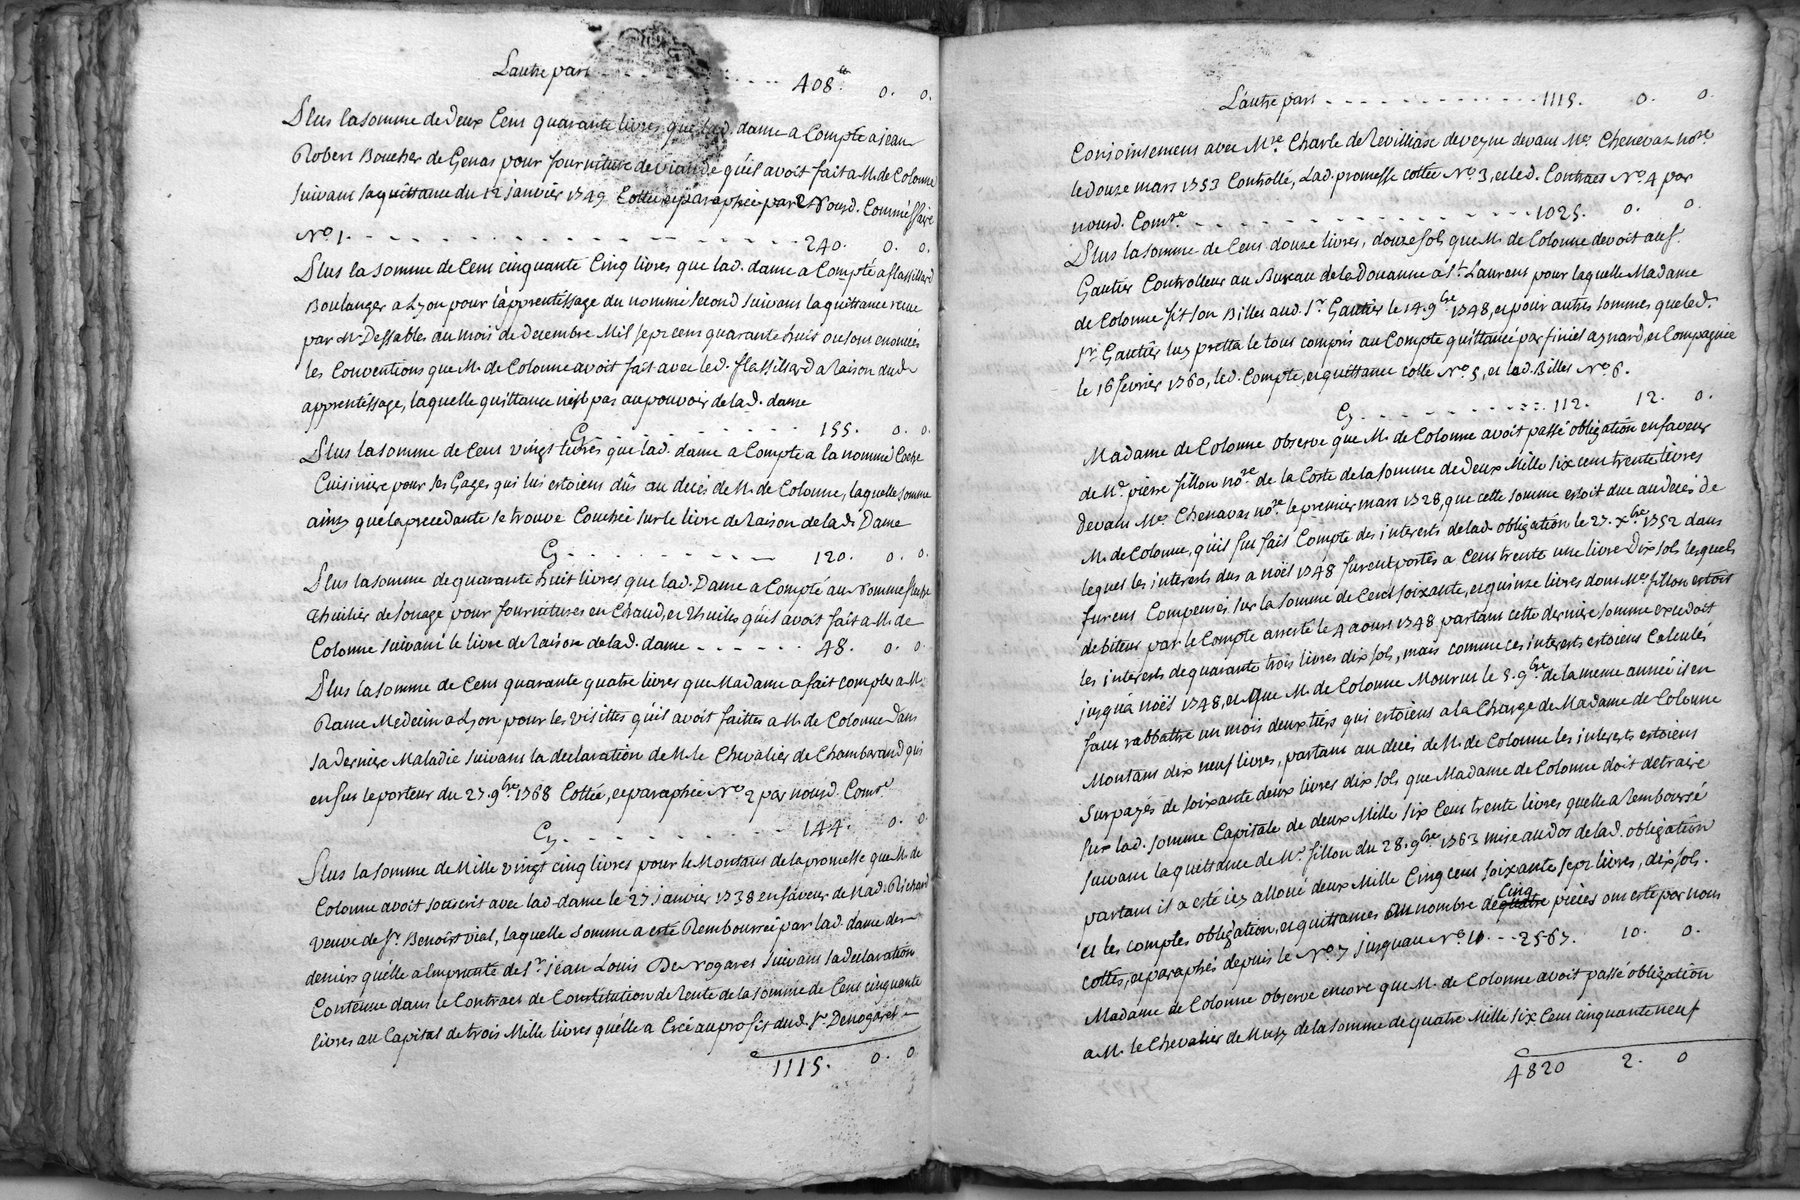 L'autre part - - - - - - - - - - 408.tt 0. 0.
Plus la somme de deux Cent quarante livres que lad. dame a Compté a jean
Robert Boucher de Genas pour fourniture de viande qu'il avoit fait a M. de Colonne
suivant sa quittance du 12 janvier 1749 Cottée et paraphée par Nousd. Comméssaire
No. 1. - - - - - - - - - - - - - 240. 0. 0.
Plus la somme de Cent cinquante Cinq livres que lad. dame a Compté a flassillard
Boulanger a Lyon pour l'apprentissage du nommé second suivant la quittance reçue
par Mr. Dessables au mois de decembre Mil sept cent quarante huit ou sont enoncées
les Conventions que M. de Colonne avoit fait avec led. flassillard a Raison dud.
apprentissage, laquelle quittance n'est pas au pouvoir de lad. dame
Cy. - - - - - - - - - 155. 0. 0.
Plus la somme de Cent vingt livres que lad. dame a Compté a la nommé
Cuisinière pour ses Gages qui lui estoient dûs au decès de M. de Colonne, laquelle somme
ainsy que la precedante se trouve Couchée sur le livre de Raison de lad. Dame
Cy. - - - - - - - - - 120. 0. 0.
Plus la somme de quarante huit livres que lad. Dame a Compté au Nommé
thuilier de Souage pour fournitures en Chaud, et thuiles qu'il avoit fait a M. de
Colonne suivant le livre de Raison de lad. dame - - - - - - 48. 0. 0.
Plus la somme de Cent quarante quatre livres que Madame a fait compter a M.
Rame Medecin a Lyon pour les visittes qu'il avoit faittes a M. de Colonne dans
sa derniere Maladie suivant la declaration de M. le Chevalier de Chambarand qui
en fut le porteur du 27. 9bre. 1768 Cottée, et paraphée No. 2 par nousd. Comre.
Cy. - - - - - - - - - 144. 0. 0.
Plus la somme de Mille vingt cinq livres pour le Montant de la promesse que M. de
Colonne avoit souscrit avec lad. dame le 27 janvier 1738 en faveur de Mad. Richard
veuve de Sr. Benoist vial, laquelle somme a esté Remboursée par lad. dame des
deniers qu'elle a Emprunté de Sr. jean Louis De Nogaret suivant sa declaration
Contenue dans le Contract de Constitution de Rente de la somme de Cent cinquante
livres au Capital de trois Mille livres qu'elle a Creé au profit dud. Sr. Denogaret
1115. 0. 0
L'autre part - - - - - - - - - - 1115. 0. 0.
Conjointement avec Mre. Charle de Revilliasc de veyne devant Me. Chenevaz nore.
le douze mars 1753 Controllé, Lad. promesse cottée No. 3, et led. Contract No. 4 par
nousd. Comre. - - - - - - - - - - - 1025. 0. 0.
Plus la somme de Cent douze livres, douze sols que M. de Colonne devoit au Sr.
Gautier Controlleur au Bureau de la Douanne à St. Laurent pour laquelle Madame
de Colonne fit son Billet aud. Sr. Gautier le 14. 9bre. 1748, et pour autres sommes que led.
Sr. Gautier luy pretta le tout compris au Compte quittancé par finiel aynard, et Compagnie
le 16 fevrier 1760, led. Compte, et quittance cotté No. 5, et led. Billet No. 6.
Cy. - - - - - - - - - - 112. 12. 0.
Madame de Colonne observe que M. de Colonne avoit passé obligation en faveur
de Me. pierre fillon nore. de la Coste de la somme de deux Mille six cent trente livres
devant Me. Chenavas nore. le premier mars 1728, que cette somme estoit due au decès de
M. de Colonne, qu'il fut fait Compte des interests de lad. obligation le 27. xbre. 1752 dans
lequel les interests dus a noël 1748 furent portés a Cent trente une livre Dix sols lesquels
furent Compensés sur la somme de Cent soixante, et quinze livres dont Me. fillon estoit
debiteur par le Compte arresté le 4 aoust 1748 partant cette derniere somme excedoit
les interests de quarante trois livres dix sols, mais comme ces interests estoient Calculés
jusqu'a noël 1748, et que M. de Colonne Mourut le 5. 9bre. de la meme année il en
faut rabbattre un mois deux tiers qui estoient a la Charge de Madame de Colonne
Montant dix neuf livres, partant au decès de M. de Colonne les interests estoient
surpayés de soixante deux livres dix sols que Madame de Colonne doit detraire
sur lad. somme Capitale de deux Mille six Cent trente livres quelle a Remboursé
suivant la quittance de Me. fillon du 28. 9bre 1763 mise au dos de lad. obligation
partant il a esté icy alloué deux Mille Cinq cent soixante sept livres, dix sols.
et les comptes obligation, et quittances au nombre de Cinq pièces ont esté par nous
cottés, et paraphés depuis le No. 7 jusqu'au No. 11. - - 2567. 10. 0.
Madame de Colonne observe encore que M. de Colonne avoit passé obligation
a M. le Chevalier de Musy de la somme de quatre Mille six Cent cinquante neuf
4820 2. 0